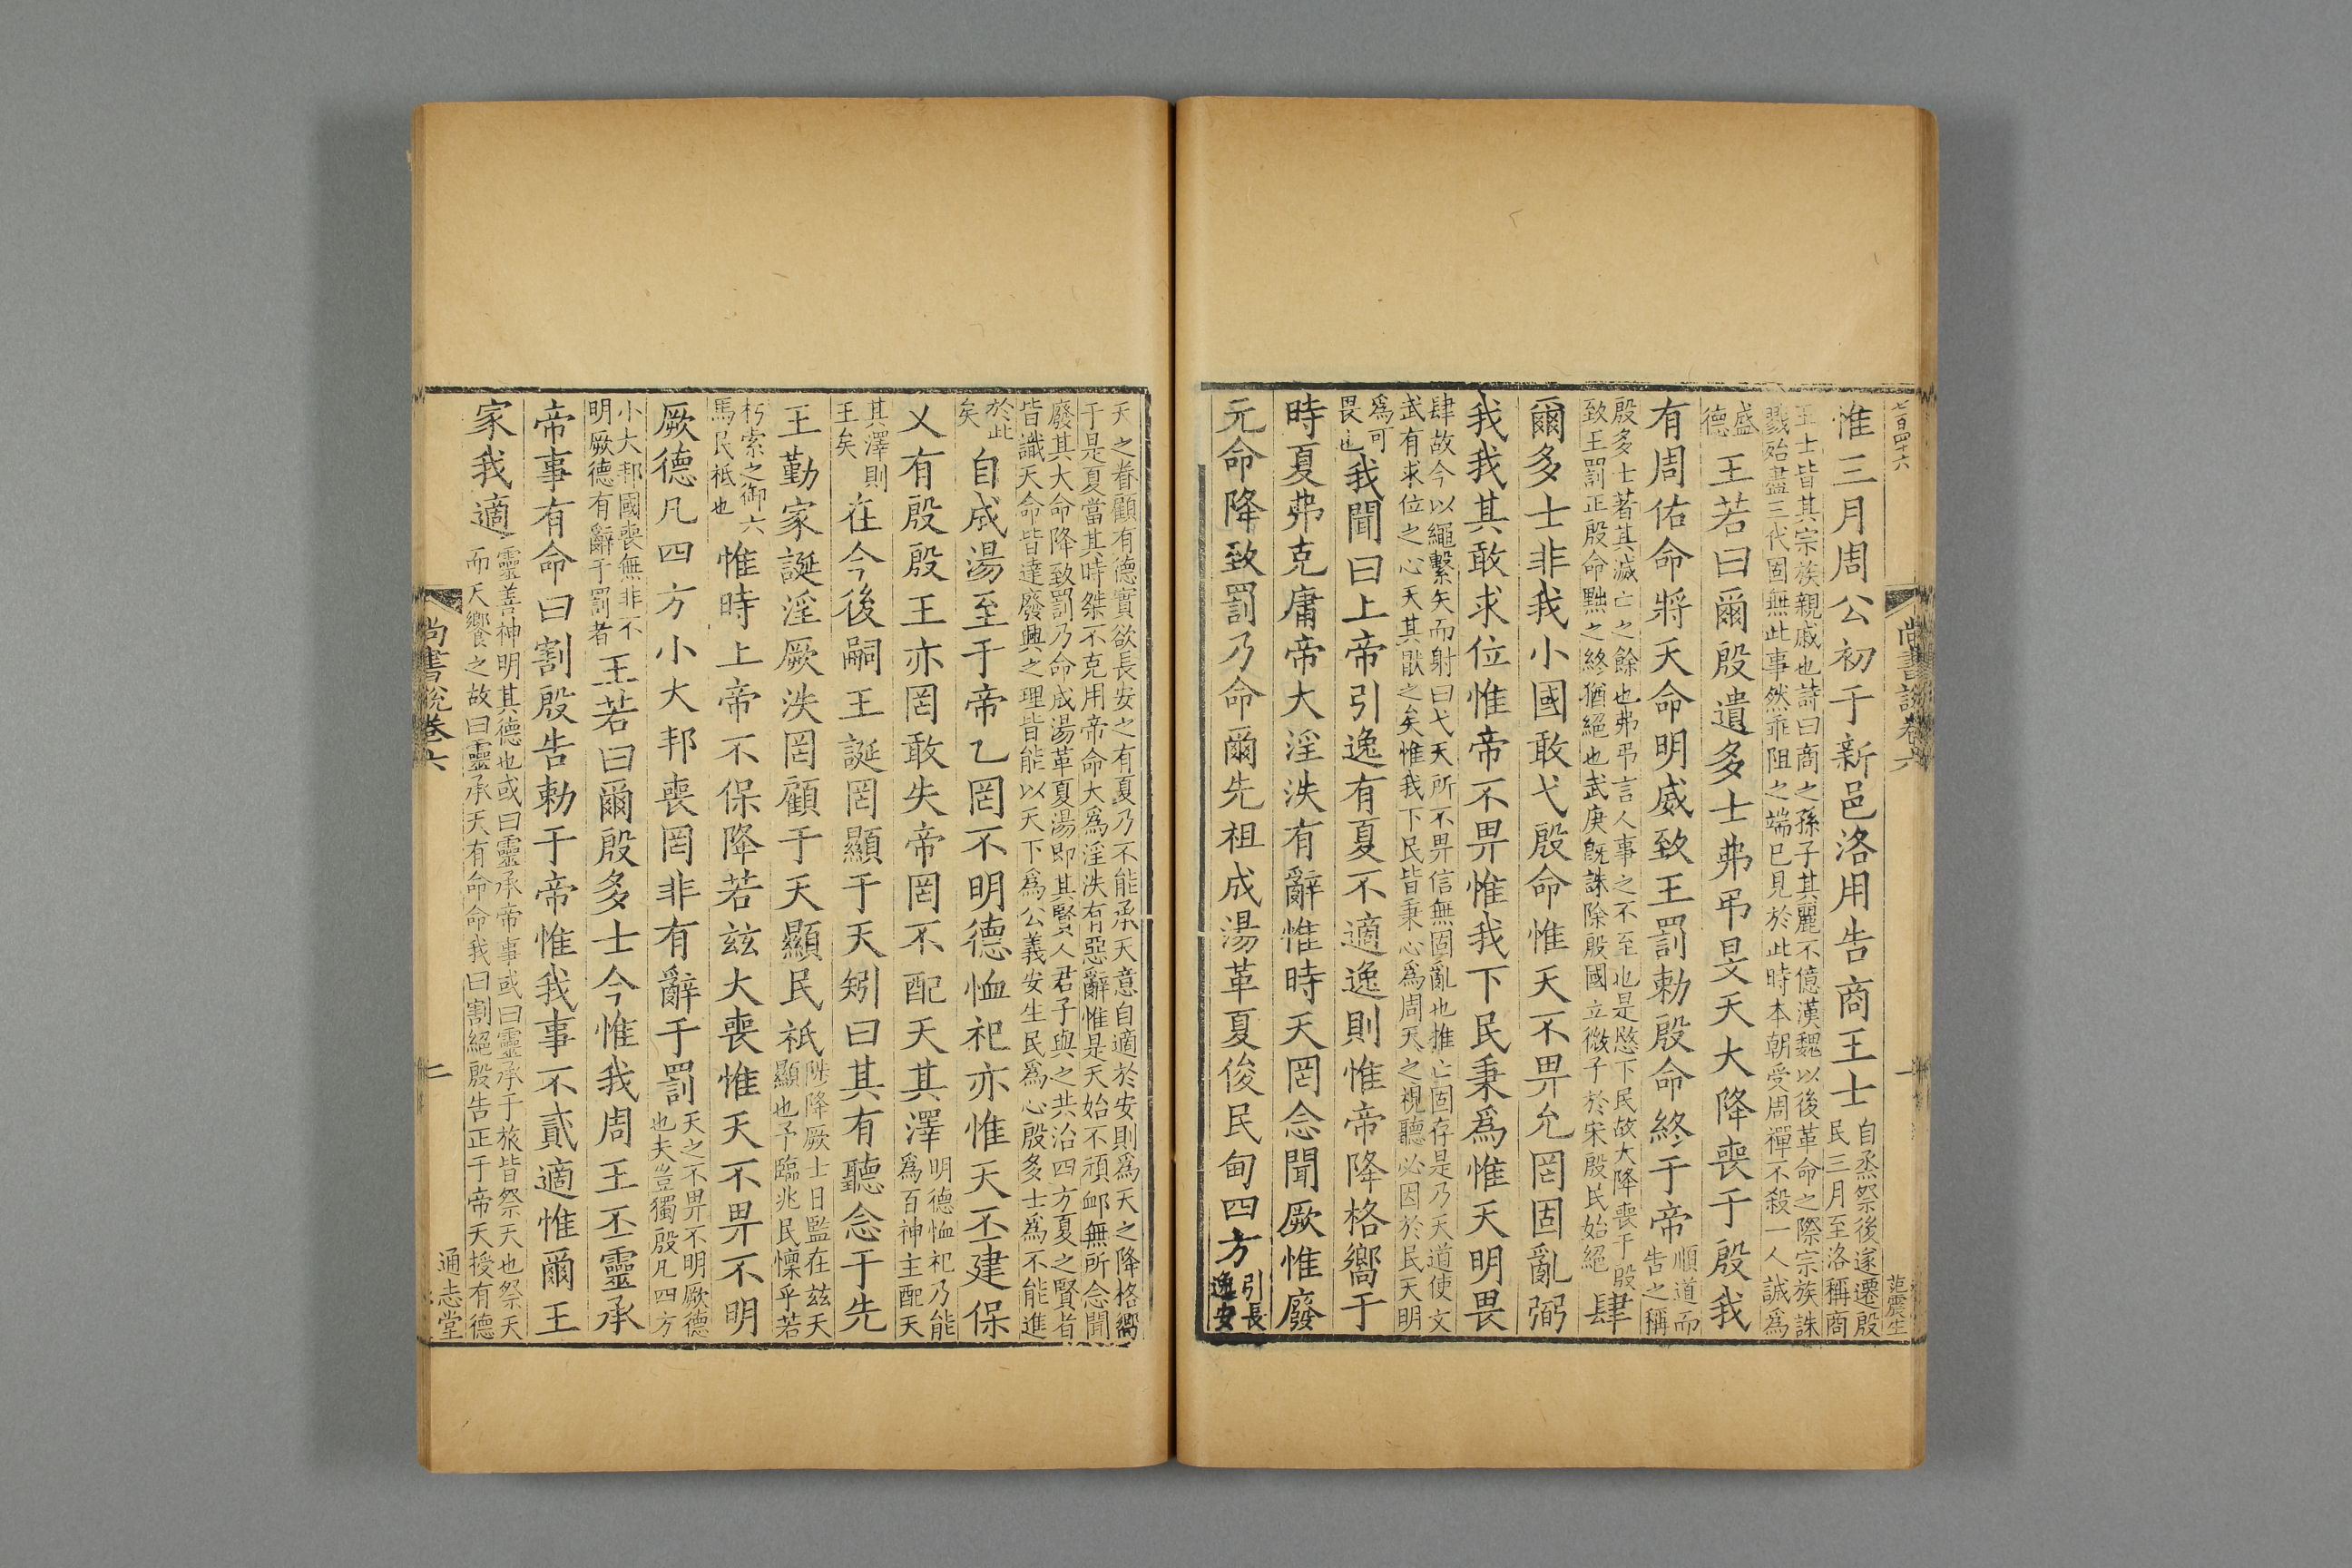 七百四十六
尚書說卷六
一
范震生
惟三月周公初于新邑洛用告商王士自烝祭後遂遷殷
民三月至洛稱商
王士皆其宗族親戚也詩曰商之孫子其麗不億漢魏以後革命之際宗族誅
戮殆盡三代固無此事然乖阻之端已見於此時本朝受周禪不殺一人誠為
盛
德王若曰爾殷遺多士弗弔旻天大降喪于殷我
有周佑命將天命明威致王罰勅殷命終于帝順道而
告之稱
殷多士若其滅亡之餘也弗弔言人事之不至也是愍下民故大降喪于殷
致王罰正殷命黜之終猶絕也武庚既誅除殷國立微子於宋殷民始絕肆
爾多士非我小國敢弋殷命惟天不畀允罔固亂弼
我我其敢求位惟帝不畀惟我下民秉為惟天明畏
肆故今以繩繫矢而射曰弋天所不畀信無固亂也推亡固存是乃天道使文
武有求位之心天其猒之矣惟我下民皆秉心為周天之視聽必因於民天明
為可
畏也我聞曰上帝引逸有夏不適逸則惟帝降格嚮于
時夏弗克庸帝大淫泆有辭惟時天罔念聞厥惟廢
元命降致罰乃命爾先祖成湯革夏俊民甸四方引長
逸安
天之眷顧有德實欲長安之有夏乃不能承天意自適於安則為天之降格嚮
于是夏當其時桀不克用帝命大為淫泆有惡辭惟是天始不頑䘏無所念聞
廢其大命降致罰乃命成湯革夏湯即其賢人君子與之共治四方夏之賢者
皆識天命皆達廢興之理皆能以天下為公義安生民為心殷多士為不能進
於此
矣自成湯至于帝乙罔不明德恤祀亦惟天丕建保
乂有殷殷王亦罔敢失帝罔不配天其澤明德恤祀乃能
為百神主配天
其澤則
王矣在今後嗣王誕罔顯于天矧曰其有聽念于先
王勤家誕淫厥泆罔顧于天顯民祗陟降厥士日監在茲天
顯也予臨兆民懍乎若
朽索之御六
馬民祗也惟時上帝不保降若茲大喪惟天不畀不明
厥德凡四方小大邦喪罔非有辭于罰天之不畀不明厥德
也夫豈獨殷凡四方
小大邦國喪無非不
明厥德有辭于罰者王若曰爾殷多士今惟我周王丕靈承
帝事有命曰割殷告勅于帝惟我事不貳適惟爾王
家我適靈善神明其德也或曰靈承帝事或曰靈承于旅皆祭天也祭天
而天饗之故曰靈承天有命命我曰割絕殷告正于帝天授有德
尚書說卷六
二
通志堂